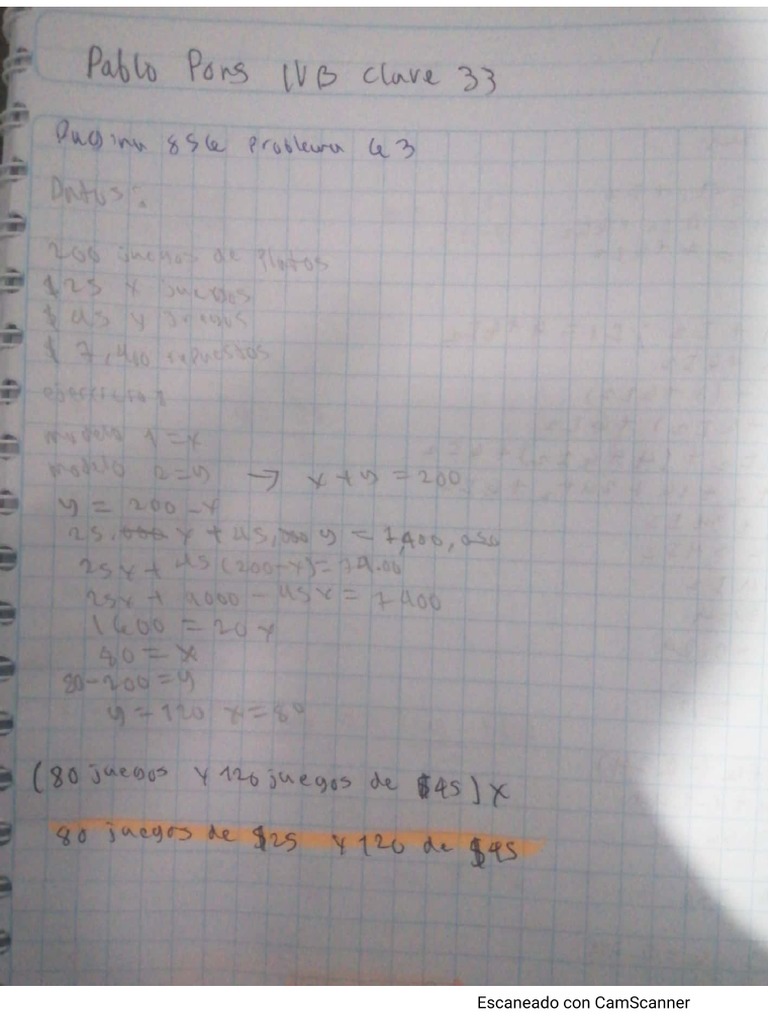 Pablo Pons IVB Clave 33
Pagina 856 problema 63
Datos:
200 juegos de platos
$25 x juegos
$45 y juegos
$7,400 repuestos
ejercicio:
modelo 1 = x
modelo 2 = y → x + y = 200
y = 200 - x
25,000 x + 45,000 y = 7,400,000
25x + 45(200-x) = 7400
25x + 9000 - 45x = 7400
1600 = 20x
80 = x
80-200 = y
y = 120 x = 80
(80 juegos y 120 juegos de $45) x
80 juegos de $25 y 120 de $45
Escaneado con CamScanner